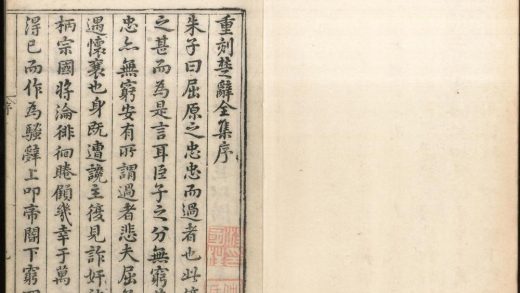 重刻楚辭全集序
朱子曰屈原之忠忠而過者也此
之甚而為是言耳臣子之分無窮
忠亦無窮安有所謂過者悲夫屈
遇懷襄也身既遭讒主復見詐奸
柄宗國將淪徘徊睠顧幾幸于萬
得已而作為騷辭上叩帝閽下窮